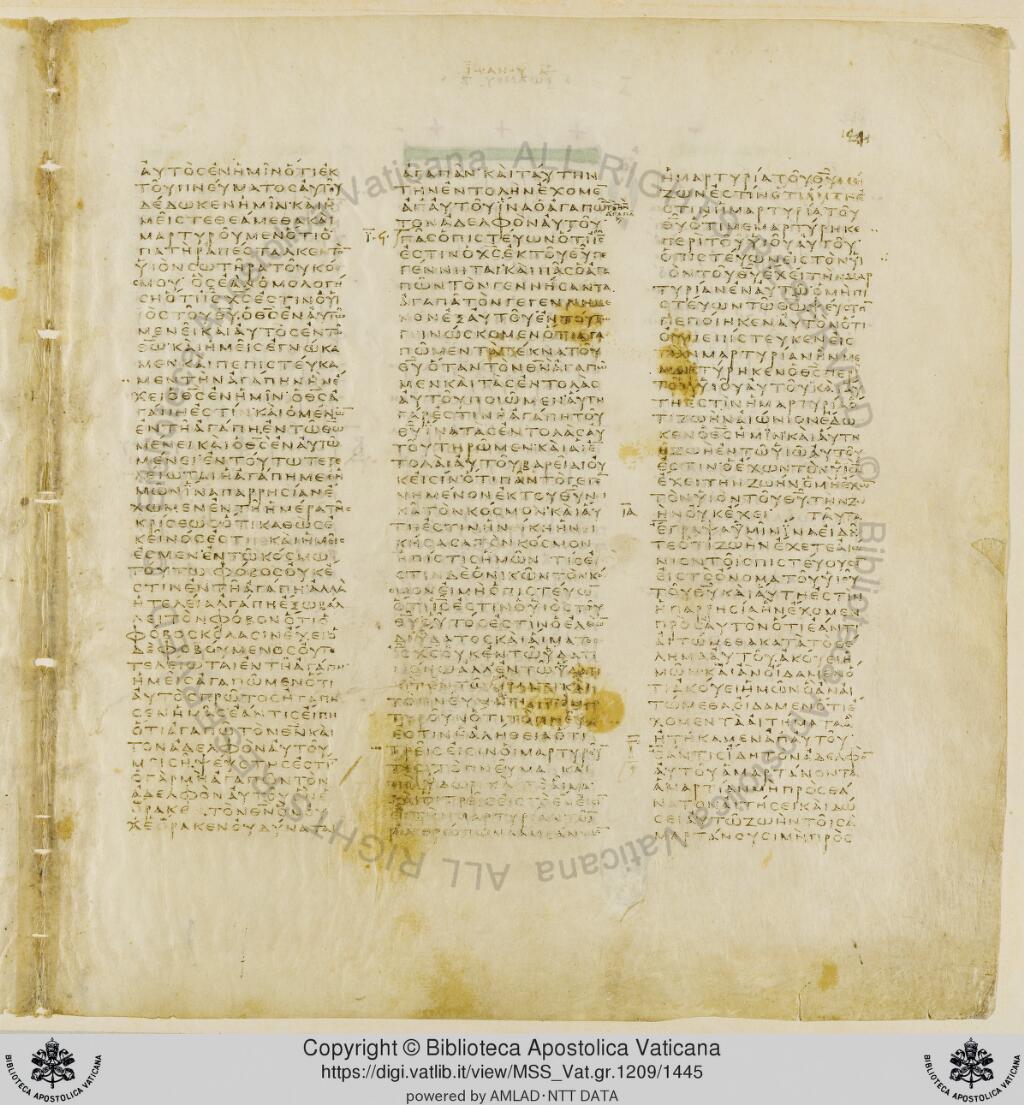 ΑΥΤΟϹΕΝΗΜΙΝΟΤΙΕΚ
ΤΟΥΠΝΕΥΜΑΤΟϹΑΥΤΟΥ
ΔΕΔΩΚΕΝΗΜΙΝ·ΚΑΙΗ
ΜΕΙϹΤΕΘΕΑΜΕΘΑΚΑΙ
ΜΑΡΤΥΡΟΥΜΕΝΟΤΙΟ
ΠΑΤΗΡΑΠΕϹΤΑΛΚΕΤΟ̅
ΥΙΟΝϹΩΤΗΡΑΤΟΥΚΟ
ϹΜΟΥ·ΟϹΕΑΝΟΜΟΛΟΓΗ
ϹΗΟΤΙΙ̅Ϲ̅Χ̅Ϲ̅ΕϹΤΙΝΟΥΙ
ΟϹΤΟΥΘ̅Υ̅·ΟΘ̅Ϲ̅ΕΝΑΥΤΩ
ΜΕΝΕΙΚΑΙΑΥΤΟϹΕΝΤΩ
Θ̅Ω̅·ΚΑΙΗΜΕΙϹΕΓΝΩΚΑ
ΜΕΝΚΑΙΠΕΠΙϹΤΕΥΚΑ
ΜΕΝΤΗΝΑΓΑΠΗΝΗΝΕ
ΧΕΙΟΘ̅Ϲ̅ΕΝΗΜΙΝ·ΟΘ̅Ϲ̅Α
ΓΑΠΗΕϹΤΙΝ·ΚΑΙΟΜΕΝΩ̅
ΕΝΤΗΑΓΑΠΗΕΝΤΩΘ̅Ω̅
ΜΕΝΕΙΚΑΙΟΘ̅Ϲ̅ΕΝΑΥΤΩ
ΜΕΝΕΙ·ΕΝΤΟΥΤΩΤΕΤΕ
ΛΕΙΩΤΑΙΗΑΓΑΠΗΜΕΘΗ
ΜΩΝΙΝΑΠΑΡΡΗϹΙΑΝΕ
ΧΩΜΕΝΕΝΤΗΗΜΕΡΑΤΗϹ
ΚΡΙϹΕΩϹΟΤΙΚΑΘΩϹΕ
ΚΕΙΝΟϹΕϹΤΙΝΚΑΙΗΜΕΙϹ
ΕϹΜΕΝΕΝΤΩΚΟϹΜΩ
ΤΟΥΤΩ·ΦΟΒΟϹΟΥΚΕ
ϹΤΙΝΕΝΤΗΑΓΑΠΗΑΛΛΑ
ΗΤΕΛΕΙΑΑΓΑΠΗΕΞΩΒΑΛ
ΛΕΙΤΟΝΦΟΒΟΝΟΤΙΟ
ΦΟΒΟϹΚΟΛΑϹΙΝΕΧΕΙΟ
ΔΕΦΟΒΟΥΜΕΝΟϹΟΥΤΕ
ΤΕΛΕΙΩΤΑΙΕΝΤΗΑΓΑΠΗ
ΗΜΕΙϹΑΓΑΠΩΜΕΝΟΤΙ
ΑΥΤΟϹΠΡΩΤΟϹΗΓΑΠΗ
ϹΕΝΗΜΑϹΕΑΝΤΙϹΕΙΠΗ
ΟΤΙΑΓΑΠΩΤΟΝΘ̅Ν̅ΚΑΙ
ΤΟΝΑΔΕΛΦΟΝΑΥΤΟΥ
ΜΙϹΗΨΕΥϹΤΗϹΕϹΤΙ̅
ΟΓΑΡΜΗΑΓΑΠΩΝΤΟΝ
ΑΔΕΛΦΟΝΑΥΤΟΥΟΝΕ
ΩΡΑΚΕΤΟΝΘ̅Ν̅ΟΝΟΥ
ΧΕΩΡΑΚΕΝΟΥΔΥΝΑΤΑΙ
ΑΓΑΠΑΝ·ΚΑΙΤΑΥΤΗΝ
ΤΗΝΕΝΤΟΛΗΝΕΧΟΜΕ̅
ΑΠΑΥΤΟΥΙΝΑΟΑΓΑΠΩ
ΤΟΝΘ̅Ν̅ΑΓΑΠΑ
ΤΟΝΑΔΕΛΦΟΝΑΥΤΟΥ·
ΠΑϹΟΠΙϹΤΕΥΩΝΟΤΙΙ̅Ϲ̅
ΕϹΤΙΝΟΧ̅Ϲ̅ΕΚΤΟΥΘ̅Υ̅ΓΕ
ΓΕΝΝΗΤΑΙΚΑΙΠΑϹΟΑΓΑ
ΠΩΝΤΟΝΓΕΝΝΗϹΑΝΤΑ
ΑΓΑΠΑΤΟΝΓΕΓΕΝΝΗΜΕ
ΝΟΝΕΞΑΥΤΟΥΕΝΤΟΥΤΩ
ΓΙΝΩϹΚΟΜΕΝΟΤΙΑΓΑ
ΠΩΜΕΝΤΑΤΕΚΝΑΤΟΥ
Θ̅Υ̅ΟΤΑΝΤΟΝΘ̅Ν̅ΑΓΑΠΩ
ΜΕΝΚΑΙΤΑϹΕΝΤΟΛΑϹ
ΑΥΤΟΥΠΟΙΩΜΕΝ·ΑΥΤΗ
ΓΑΡΕϹΤΙΝΗΑΓΑΠΗΤΟΥ
Θ̅Υ̅ΙΝΑΤΑϹΕΝΤΟΛΑϹΑΥ
ΤΟΥΤΗΡΩΜΕΝ·ΚΑΙΑΙΕ̅
ΤΟΛΑΙΑΥΤΟΥΒΑΡΕΙΑΙΟΥ
ΚΕΙϹΙΝΟΤΙΠΑΝΤΟΓΕΓΕ̅
ΝΗΜΕΝΟΝΕΚΤΟΥΘ̅Υ̅ΝΙ
ΚΑΤΟΝΚΟϹΜΟΝ·ΚΑΙΑΥ
ΤΗΕϹΤΙΝΗΝΙΚΗΗΝΙ
ΚΗϹΑϹΑΤΟΝΚΟϹΜΟΝ
ΗΠΙϹΤΙϹΗΜΩΝΤΙϹΕ
ϹΤΙΝΔΕΟΝΙΚΩΝΤΟΝΚΟ
ϹΜΟΝΕΙΜΗΟΠΙϹΤΕΥΩ̅
ΟΤΙΙ̅Ϲ̅ΕϹΤΙΝΟΥΙΟϹΤΟΥ
Θ̅Υ̅·ΟΥΤΟϹΕϹΤΙΝΟΕΛΘΩ̅
ΔΙΥΔΑΤΟϹΚΑΙΑΙΜΑΤΟϹ
Ι̅Ϲ̅Χ̅Ϲ̅ΟΥΚΕΝΤΩΥΔΑΤΙ
ΜΟΝΩΑΛΛΕΝΤΩΥΔΑΤΙ
ΚΑΙΕΝΤΩΑΙΜΑΤΙΚΑΙ
ΤΟΠΝΕΥΜΑΕϹΤΙΤΟΜΑΡ
ΤΥΡΟΥΝΟΤΙΤΟΠΝΕΥΜΑ
ΕϹΤΙΝΗΑΛΗΘΕΙΑΟΤΙ
ΤΡΕΙϹΕΙϹΙΝΟΙΜΑΡΤΥΡΟΥ̅
ΤΕϹΤΟΠΝΕΥΜΑΚΑΙ
ΤΟΥΔΩΡΚΑΙΤΟΑΙΜΑ
ΚΑΙΟΙΤΡΕΙϹΕΙϹΤΟΕΝΕΙϹΙ
ΕΙΤΗΝΜΑΡΤΥΡΙΑΝΤΩΝ
ΑΝΘΡΩΠΩΝΛΑΜΒΑΝΟΜΕ̅
ΗΜΑΡΤΥΡΙΑΤΟΥΘ̅Υ̅ΜΕΙ
ΖΩΝΕϹΤΙΝΟΤΙΑΥΤΗΕ
ϹΤΙΝΗΜΑΡΤΥΡΙΑΤΟΥ
Θ̅Υ̅ΟΤΙΜΕΜΑΡΤΥΡΗΚΕ
ΠΕΡΙΤΟΥΥΙΟΥΑΥΤΟΥ·
ΟΠΙϹΤΕΥΩΝΕΙϹΤΟΝΥΙ
ΟΝΤΟΥΘ̅Υ̅ΕΧΕΙΤΗΝΜΑΡ
ΤΥΡΙΑΝΕΝΑΥΤΩ·ΟΜΗΠΙ
ϹΤΕΥΩΝΤΩΘ̅Ω̅ΨΕΥϹΤΗ̅
ΠΕΠΟΙΗΚΕΝΑΥΤΟΝΟΤΙ
ΟΥΠΕΠΙϹΤΕΥΚΕΝΕΙϹ
ΤΗΝΜΑΡΤΥΡΙΑΝΗΝΜΕ
ΜΑΡΤΥΡΗΚΕΝΟΘ̅Ϲ̅ΠΕΡΙ
ΤΟΥΥΙΟΥΑΥΤΟΥΚΑΙΑΥ
ΤΗΕϹΤΙΝΗΜΑΡΤΥΡΙΑΟ
ΤΙΖΩΗΝΑΙΩΝΙΟΝΕΔΩ
ΚΕΝΟΘ̅Ϲ̅ΗΜΙΝ·ΚΑΙΑΥΤΗ
ΗΖΩΗΕΝΤΩΥΙΩΑΥΤΟΥ
ΕϹΤΙΝ·ΟΕΧΩΝΤΟΝΥΙΟ̅
ΕΧΕΙΤΗΝΖΩΗΝ·ΟΜΗΕΧΩ̅
ΤΟΝΥΙΟΝΤΟΥΘ̅Υ̅·ΤΗΝΖΩ
ΗΝΟΥΚΕΧΕΙ·ΤΑΥΤΑ
ΕΓΡΑΨΑΥΜΙΝΙΝΑΕΙΔΗ
ΤΕΟΤΙΖΩΗΝΕΧΕΤΕΑΙΩ
ΝΙΟΝΤΟΙϹΠΙϹΤΕΥΟΥϹΙ̅
ΕΙϹΤΟΟΝΟΜΑΤΟΥΥΙΟΥ
ΤΟΥΘ̅Υ̅·ΚΑΙΑΥΤΗΕϹΤΙΝ
ΗΠΑΡΡΗϹΙΑΗΝΕΧΟΜΕΝ
ΠΡΟϹΑΥΤΟΝΟΤΙΕΑΝΤΙ
ΑΙΤΩΜΕΘΑΚΑΤΑΤΟΘΕ
ΛΗΜΑΑΥΤΟΥΑΚΟΥΕΙΗ
ΜΩΝ·ΚΑΙΑΝΟΙΔΑΜΕΝΟ
ΤΙΑΚΟΥΕΙΗΜΩΝΟΑΝΑΙ
ΤΩΜΕΘΑΟΙΔΑΜΕΝΟΤΙΕ
ΧΟΜΕΝΤΑΑΙΤΗΜΑΤΑΑ
ΗΤΗΚΑΜΕΝΑΠΑΥΤΟΥ·
ΕΑΝΤΙϹΙΔΗΤΟΝΑΔΕΛΦΟ̅
ΑΥΤΟΥΑΜΑΡΤΑΝΟΝΤΑ
ΑΜΑΡΤΙΑΝΜΗΠΡΟϹΘΑ
ΝΑΤΟΝΑΙΤΗϹΕΙΚΑΙΔΩ
ϹΕΙΑΥΤΩΖΩΗΝΤΟΙϹΑ
ΜΑΡΤΑΝΟΥϹΙΜΗΠΡΟϹ
Vaticana ALL RIGHTS
Copyright © Biblioteca Apostolica Vaticana
https://digi.vatlib.it/view/MSS_Vat.gr.1209/1445
powered by AMLAD·NTT DATA
BIBLIOTECA APOSTOLICA VATICANA
BIBLIOTECA APOSTOLICA VATICANA